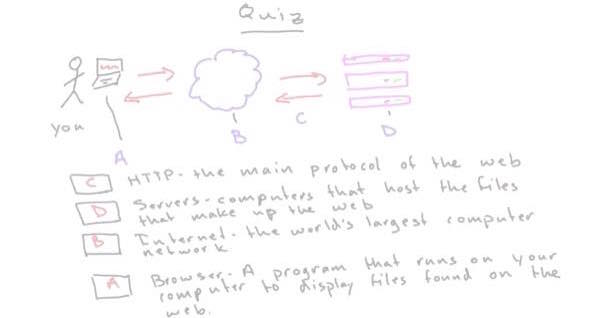 Quiz
you
A
B
C
D
C HTTP - the main protocol of the web
D Servers - computers that host the files
that make up the web
B Internet - the world's largest computer
network.
A Browser - A program that runs on your
computer to display files found on the
web.